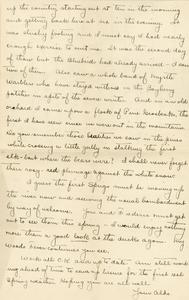 up the country starting out at ten in the morning
and getting back here at six in the evening. It
was slushy footing and I must say I had nearly
enough exercise to suit me. It was the second day
of them but the bluebirds had already arrived - I saw
two of them. Also saw a whole band of myrtle
Warbler who have stayed without in the bayberry
patches in spite of the severe winter. And in an old
orchard I came upon a flock of Pine Grosbeaks, the
first I have seen since we were out in the mountains
Do you remember those beauties we saw in the pines
while crossing a little gully in stalking the first
elk - but where the bears were! I shall never forget
their rosy-red plumage against the white snow.
I guess the first Spring must be moving up
the river now and receiving the usual bombardment
by way of welcome. You and I must get
out to see them this spring - I would enjoy nothing
more than a good look at the ducks again. My
Woods ones continue you see.
Work all O.K. and up to date. Am still work-
ing ahead of time to save up leisure for the first real
Spring weather. Hoping you are all well.
Yours Aldo